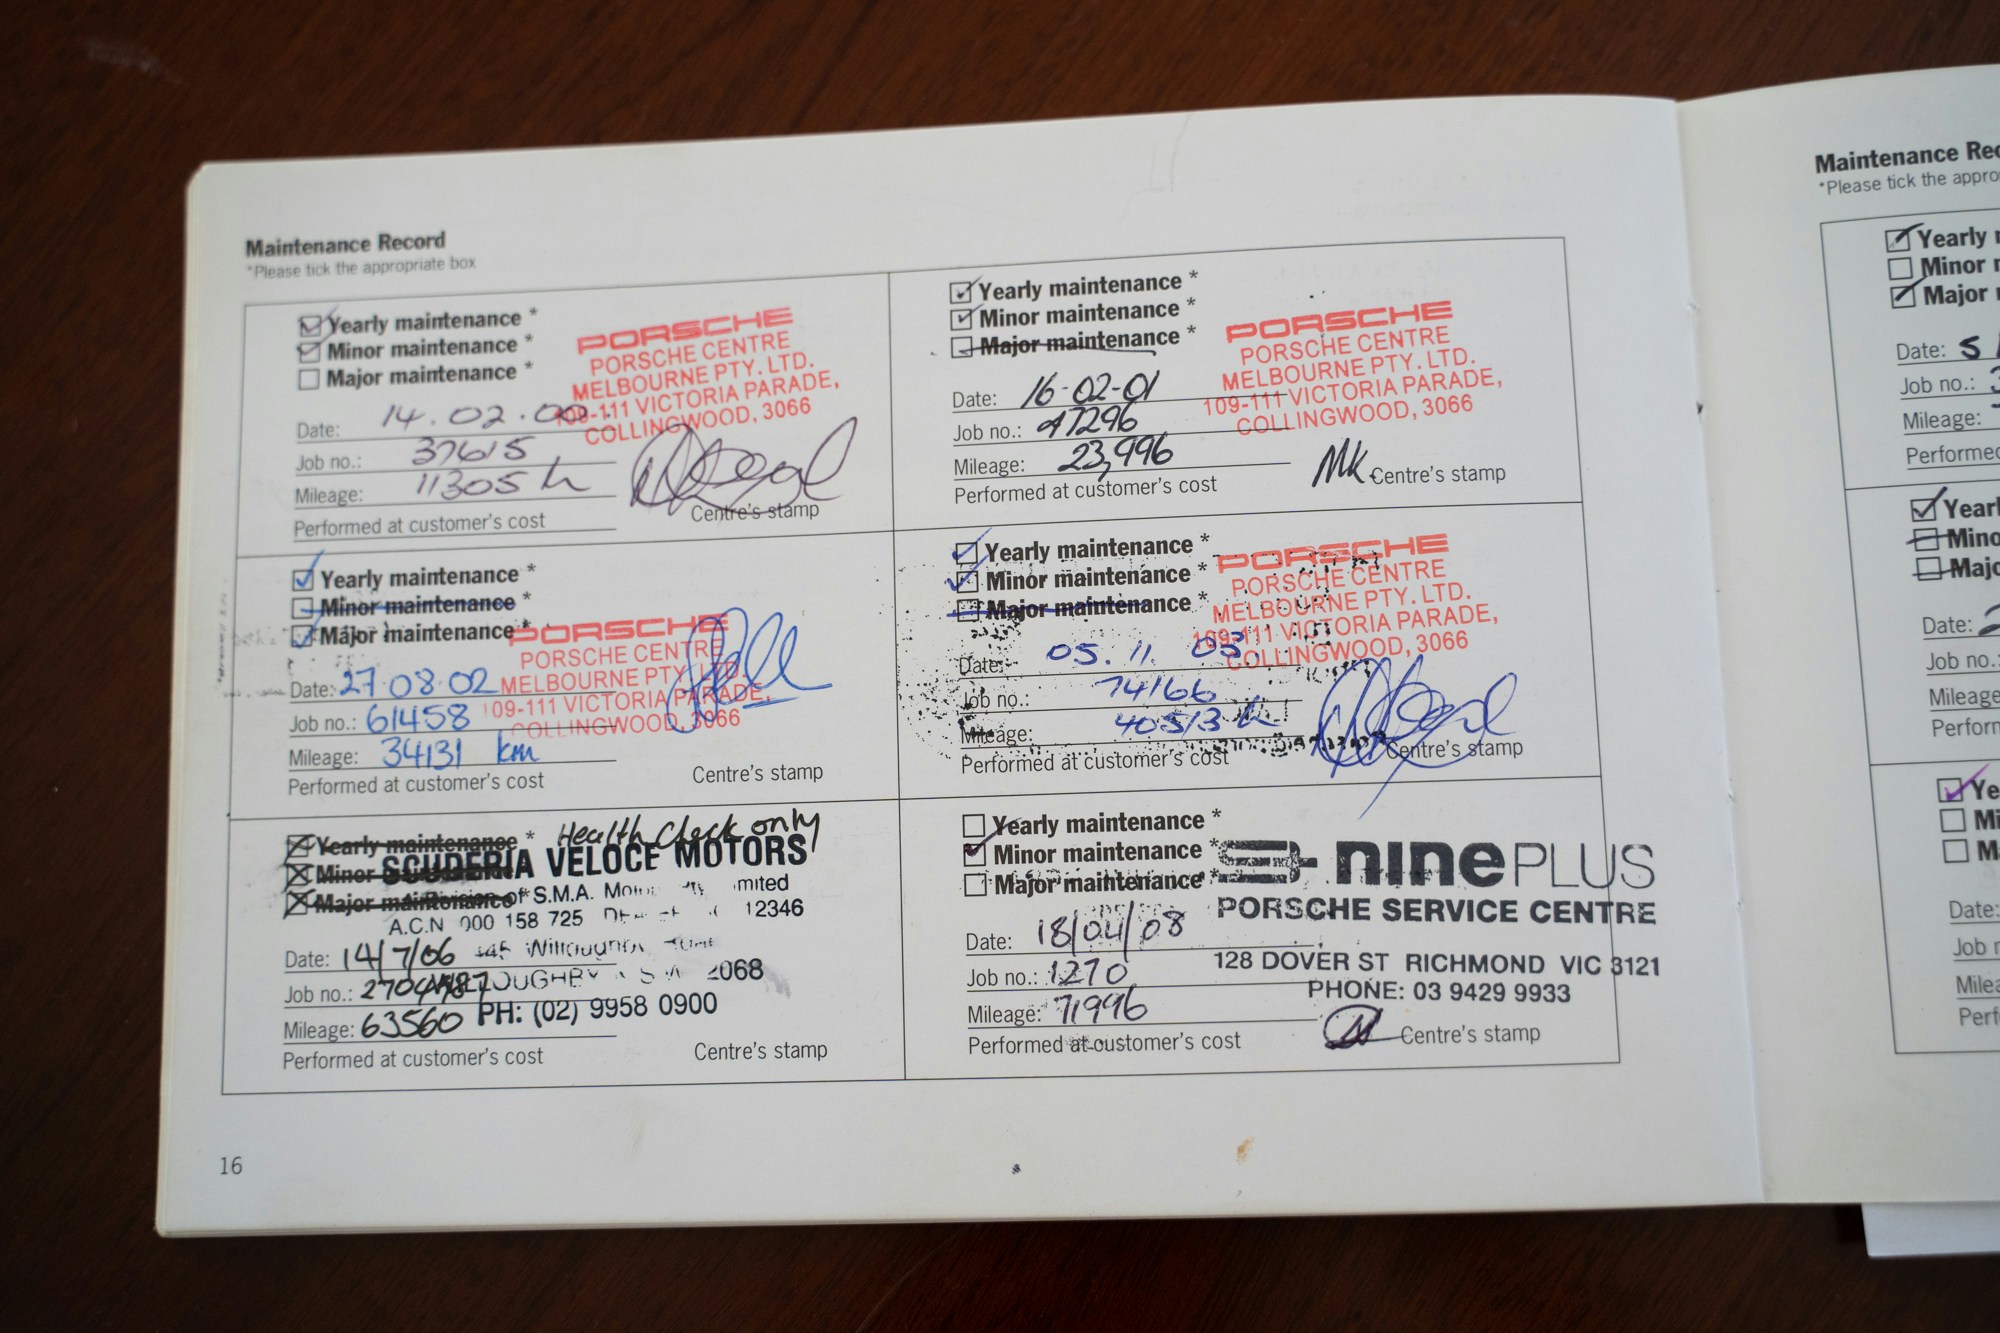 Maintenance Record
*Please tick the appropriate box
Yearly maintenance *
Minor maintenance *
Major maintenance *
PORSCHE
PORSCHE CENTRE
MELBOURNE PTY. LTD.
109-111 VICTORIA PARADE,
COLLINGWOOD, 3066
Date: 14.02.00
Job no.: 37615
Mileage: 11305
Performed at customer's cost
Centre's stamp
Yearly maintenance *
Minor maintenance *
Major maintenance *
PORSCHE
PORSCHE CENTRE
MELBOURNE PTY. LTD.
109-111 VICTORIA PARADE,
COLLINGWOOD, 3066
Date: 16-02-01
Job no.: 47296
Mileage: 23,996
MK
Performed at customer's cost
Centre's stamp
Yearly maintenance *
Minor maintenance *
Major maintenance *
PORSCHE
PORSCHE CENTRE
MELBOURNE PTY. LTD.
109-111 VICTORIA PARADE,
COLLINGWOOD, 3066
Date: 27.08.02
Job no.: 61458
Mileage: 34131 km
Performed at customer's cost
Centre's stamp
Yearly maintenance *
Minor maintenance *
Major maintenance *
PORSCHE
PORSCHE CENTRE
MELBOURNE PTY. LTD.
109-111 VICTORIA PARADE,
COLLINGWOOD, 3066
Date: 05.11.03
Job no.: 74166
Mileage: 40513
Performed at customer's cost
Centre's stamp
Yearly maintenance * Health Check only
Minor maintenance
Major maintenance
SCUDERIA VELOCE MOTORS
Division of S.M.A. Motors
A.C.N 000 158 725 12346
Date: 14/7/06
Willoughby
WILLOUGHBY N.S.W. 2068
Job no.:
PH: (02) 9958 0900
Mileage: 63560
Performed at customer's cost
Centre's stamp
Yearly maintenance *
Minor maintenance *
Major maintenance *
ninePLUS
PORSCHE SERVICE CENTRE
128 DOVER ST RICHMOND VIC 3121
PHONE: 03 9429 9933
Date: 18/04/08
Job no.: 1270
Mileage: 71996
Performed at customer's cost
Centre's stamp
16
Maintenance Rec
*Please tick the appro
Yearly
Minor
Major
Date: 5
Job no.: 3
Mileage:
Performed
Yearl
Mino
Majo
Date: 2
Job no.
Mileage
Perform
Ye
Mi
M
Date:
Job n
Milea
Perf